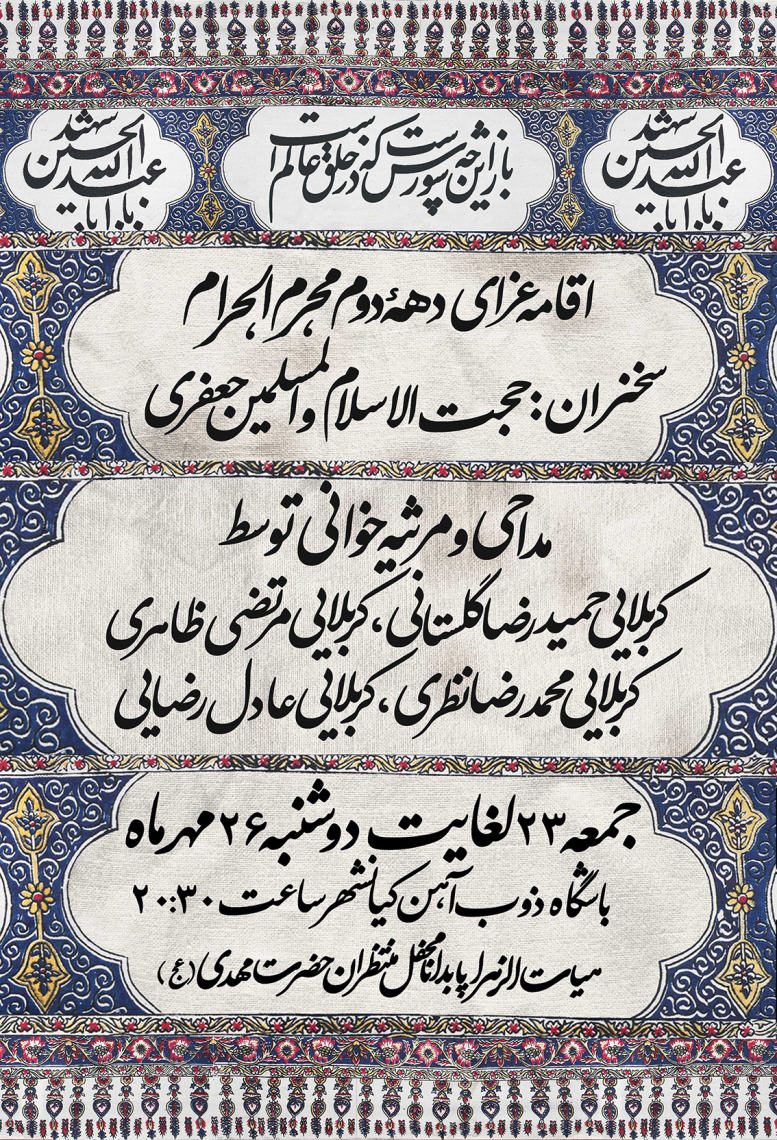 شهید عبدالله الحسین یا اباعبدالله
باز این چه شورش است که در خلق عالم است
اقامه عزای دههٔ دوم محرم الحرام
سخنران: حجت الاسلام والمسلمین جعفری
مداحی و مرثیه خوانی توسط
کربلایی حمیدرضا گلستانی، کربلایی مرتضی ظاهری
کربلایی محمدرضا نظری، کربلائی عادل رضایی
جمعه ۲۳ لغایت دوشنبه ۲۶ مهرماه
باشگاه ذوب آهن کیانشهر ساعت ۲۰:۳۰
هیات الزهرا پابدانا محفل منتظران حضرت مهدی (عج)